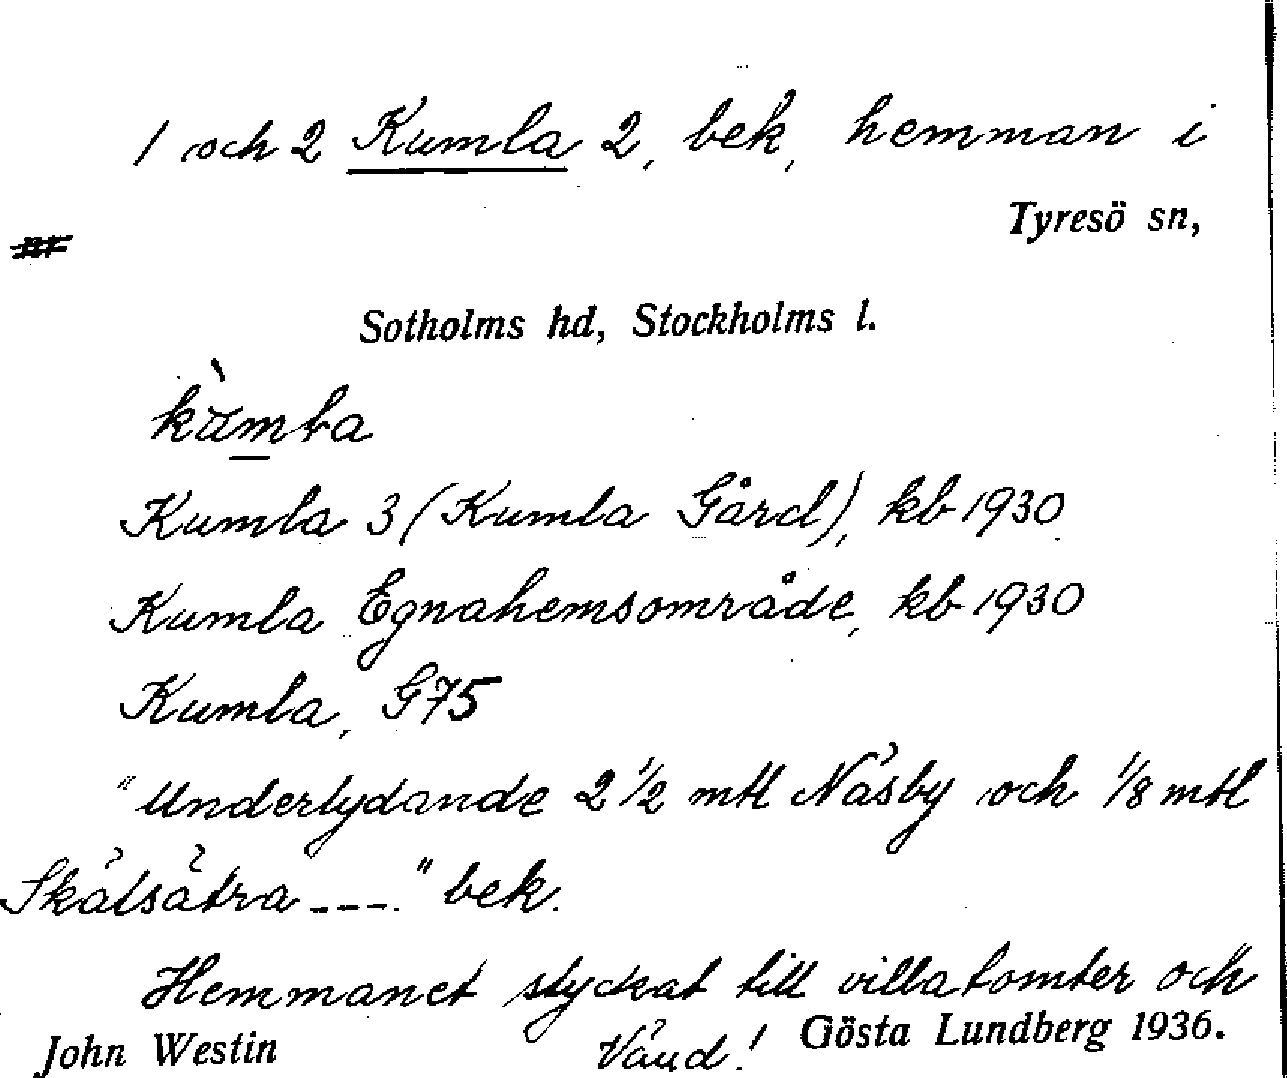 1 och 2 Kumla 2, bek, hemman i
Tyresö sn,
Sotholms hd, Stockholms l.
Kumla 3 (Kumla Gård), kb 1930
Kumla Egnahemsområde, kb 1930
Kumla, G75
"Underlydande 2 1/2 mtl Näsby och 1/8 mtl
Skälsätra ---." bek.
Hemmanet styckat till villatomter och
Vänd!
John Westin Gösta Lundberg 1936.